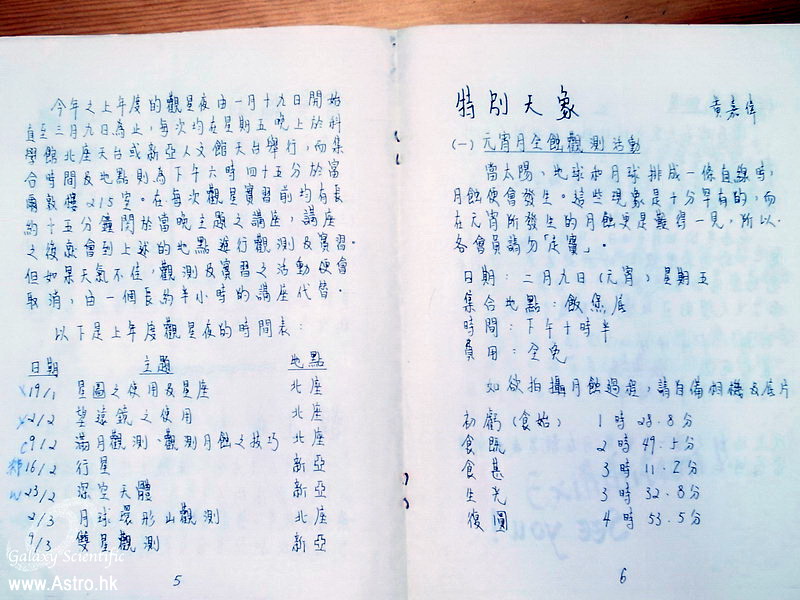 今年之上年度的觀星夜由一月十九日開始
直至三月九日為止，每次均在星期五晚上於科
學館北座天台或新亞人文館天台舉行，而集
合時間及地點則為下午六時四十五分於富
爾敦樓215室。在每次觀星實習前均有長
約十五分鐘關於當晚主題之講座，講座
之後應會到上述的地點進行觀測及實習。
但如果天氣不佳，觀測及實習之活動便會
取消，由一個長約半小時的講座代替。
以下是上年度觀星夜的時間表：
日期 主題 地點
x 19/1 星圖之使用及星座 北座
x 2/2 望遠鏡之使用 北座
c 9/2 滿月觀測、觀測月蝕之技巧 北座
16/2 行星 新亞
w 23/2 深空天體 新亞
2/3 月球環形山觀測 北座
9/3 雙星觀測 新亞
5
特別天象 黃嘉偉
(一) 元宵月全蝕觀測活動
當太陽，地球和月球排成一條直線時，
月蝕便會發生。這些現象是十分罕有的，而
在元宵所發生的月蝕更是難得一見，所以
各會員請勿「走寶」。
日期：二月九日（元宵）星期五
集合地點：飯煲底
時間：下午十時半
費用：全免
如欲拍攝月蝕過程，請自備相機及底片
初虧（食始） 1時28.8分
食既 2時49.5分
食甚 3時11.2分
生光 3時32.8分
復圓 4時53.5分
See you
6
Galaxy Scientific
www.Astro.hk